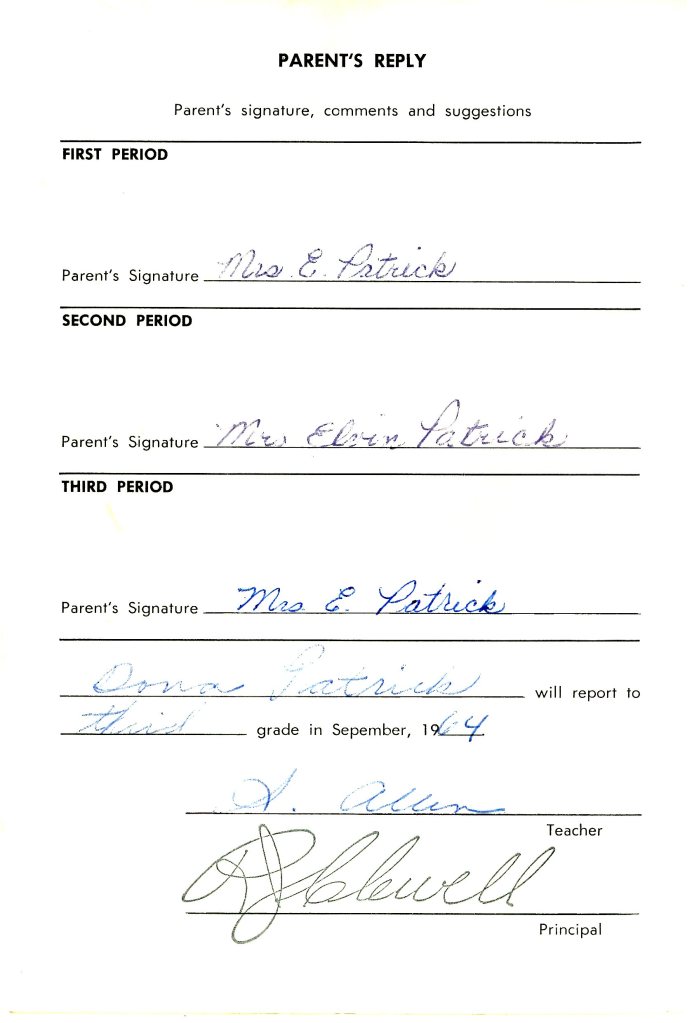 PARENT'S REPLY
Parent's signature, comments and suggestions
FIRST PERIOD
Parent's Signature Mrs E. Patrick
SECOND PERIOD
Parent's Signature Mrs Elvin Patrick
THIRD PERIOD
Parent's Signature Mrs E. Patrick
Dona Patrick will report to
third grade in Sepember, 1964
Allen
Teacher
Principal